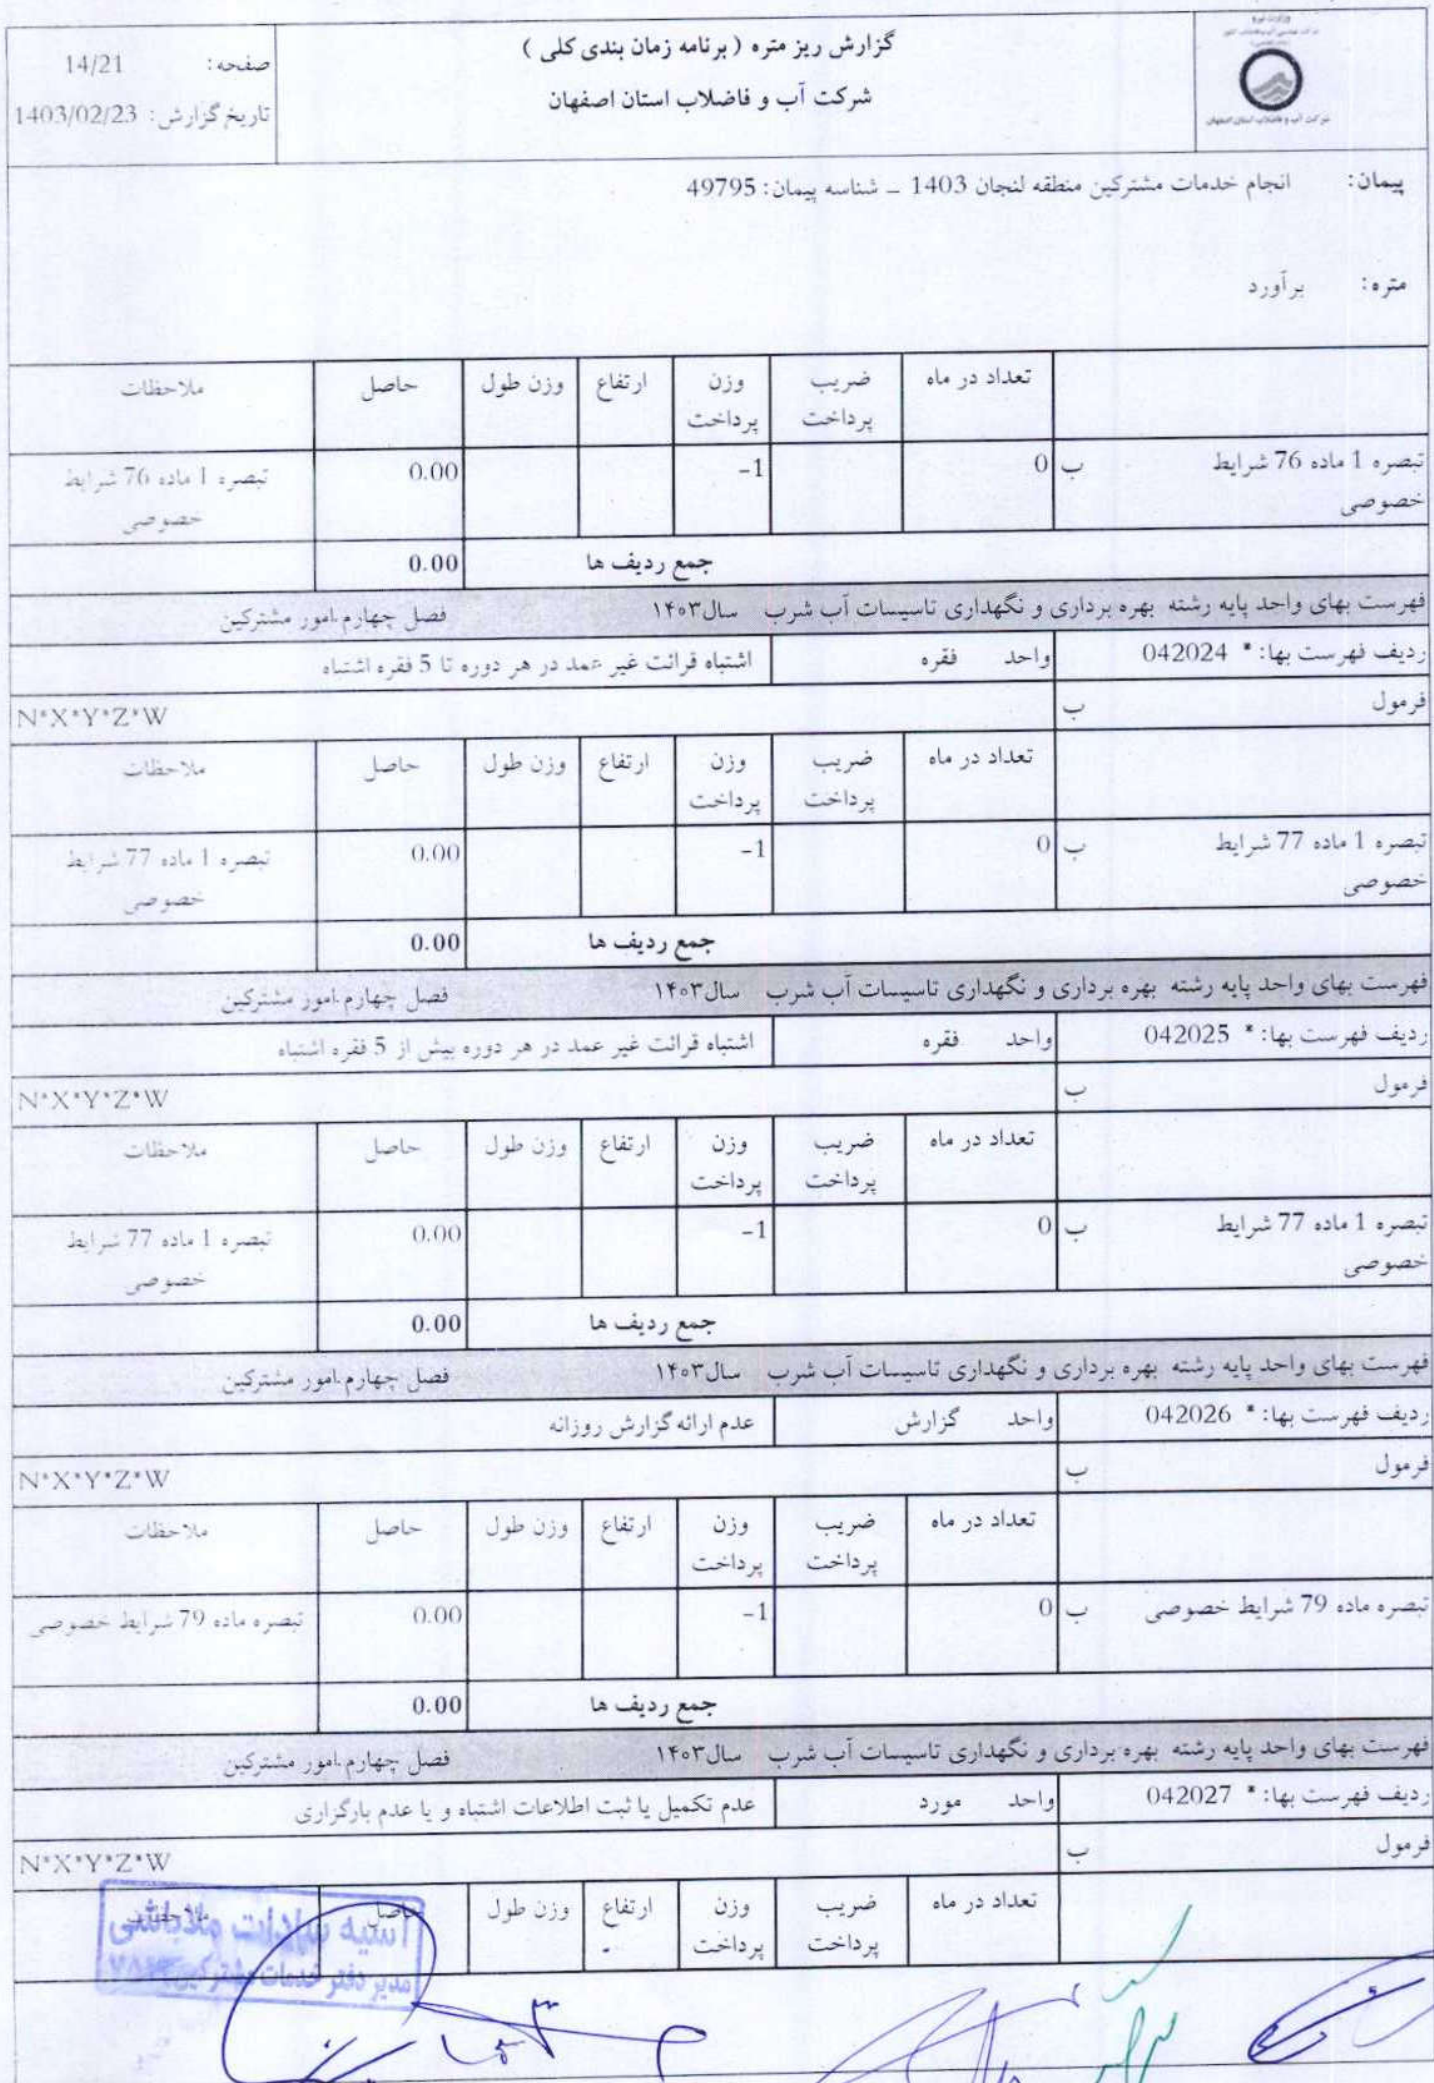 وزارت نیرو
شرکت آب و فاضلاب استان اصفهان
گزارش ریز متره ( برنامه زمان بندی کلی )
شرکت آب و فاضلاب استان اصفهان
صفحه: 14/21
تاریخ گزارش: 1403/02/23
پیمان: انجام خدمات مشترکین منطقه لنجان 1403 _ شناسه پیمان: 49795
متره: برآورد
تعداد در ماه ضریب پرداخت وزن پرداخت ارتفاع وزن طول حاصل ملاحظات
تبصره 1 ماده 76 شرایط خصوصی ب 0 -1 0.00 تبصره 1 ماده 76 شرایط خصوصی
جمع ردیف ها 0.00
فهرست بهای واحد پایه رشته بهره برداری و نگهداری تاسیسات آب شرب سال۱۴۰۳ فصل چهارم.امور مشترکین
ردیف فهرست بها: * 042024 واحد فقره اشتباه قرائت غیر عمد در هر دوره تا 5 فقره اشتباه
فرمول ب N*X*Y*Z*W
تعداد در ماه ضریب پرداخت وزن پرداخت ارتفاع وزن طول حاصل ملاحظات
تبصره 1 ماده 77 شرایط خصوصی ب 0 -1 0.00 تبصره 1 ماده 77 شرایط خصوصی
جمع ردیف ها 0.00
فهرست بهای واحد پایه رشته بهره برداری و نگهداری تاسیسات آب شرب سال۱۴۰۳ فصل چهارم.امور مشترکین
ردیف فهرست بها: * 042025 واحد فقره اشتباه قرائت غیر عمد در هر دوره بیش از 5 فقره اشتباه
فرمول ب N*X*Y*Z*W
تعداد در ماه ضریب پرداخت وزن پرداخت ارتفاع وزن طول حاصل ملاحظات
تبصره 1 ماده 77 شرایط خصوصی ب 0 -1 0.00 تبصره 1 ماده 77 شرایط خصوصی
جمع ردیف ها 0.00
فهرست بهای واحد پایه رشته بهره برداری و نگهداری تاسیسات آب شرب سال۱۴۰۳ فصل چهارم.امور مشترکین
ردیف فهرست بها: * 042026 واحد گزارش عدم ارائه گزارش روزانه
فرمول ب N*X*Y*Z*W
تعداد در ماه ضریب پرداخت وزن پرداخت ارتفاع وزن طول حاصل ملاحظات
تبصره ماده 79 شرایط خصوصی ب 0 -1 0.00 تبصره ماده 79 شرایط خصوصی
جمع ردیف ها 0.00
فهرست بهای واحد پایه رشته بهره برداری و نگهداری تاسیسات آب شرب سال۱۴۰۳ فصل چهارم.امور مشترکین
ردیف فهرست بها: * 042027 واحد مورد عدم تکمیل یا ثبت اطلاعات اشتباه و یا عدم بارگزاری
فرمول ب N*X*Y*Z*W
تعداد در ماه ضریب پرداخت وزن پرداخت ارتفاع وزن طول حاصل ملاحظات
مدیر دفتر خدمات مشترکین